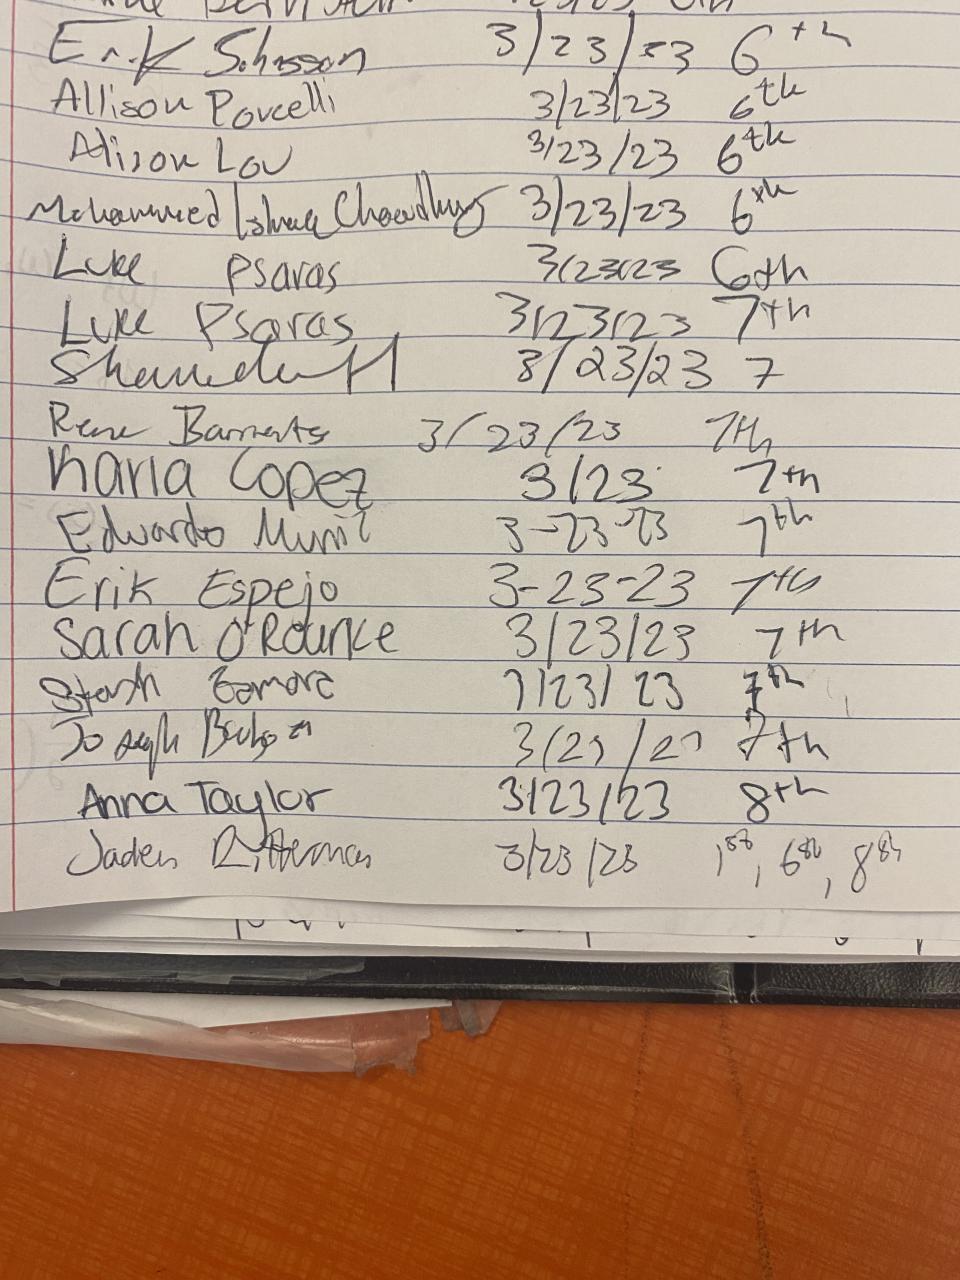 Erik 3/23/23 6th
Allison Porcelli 3/23/23 6th
Alison Lou 3/23/23 6th
Mohammed Chowdhury 3/23/23 6th
Luke Psaras 3/23/23 6th
Luke Psaras 3/23/23 7th
3/23/23 7
Rene 3/23/23 7th
Karla Lopez 3/23 7th
Edwardo 3-23-23 7th
Erik Espejo 3-23-23 7th
Sarah O'Rourke 3/23/23 7th
/23/23 7th
Joseph 7th
Anna Taylor 3/23/23 8th
Jaden 3/23/23 1st, 6th, 8th